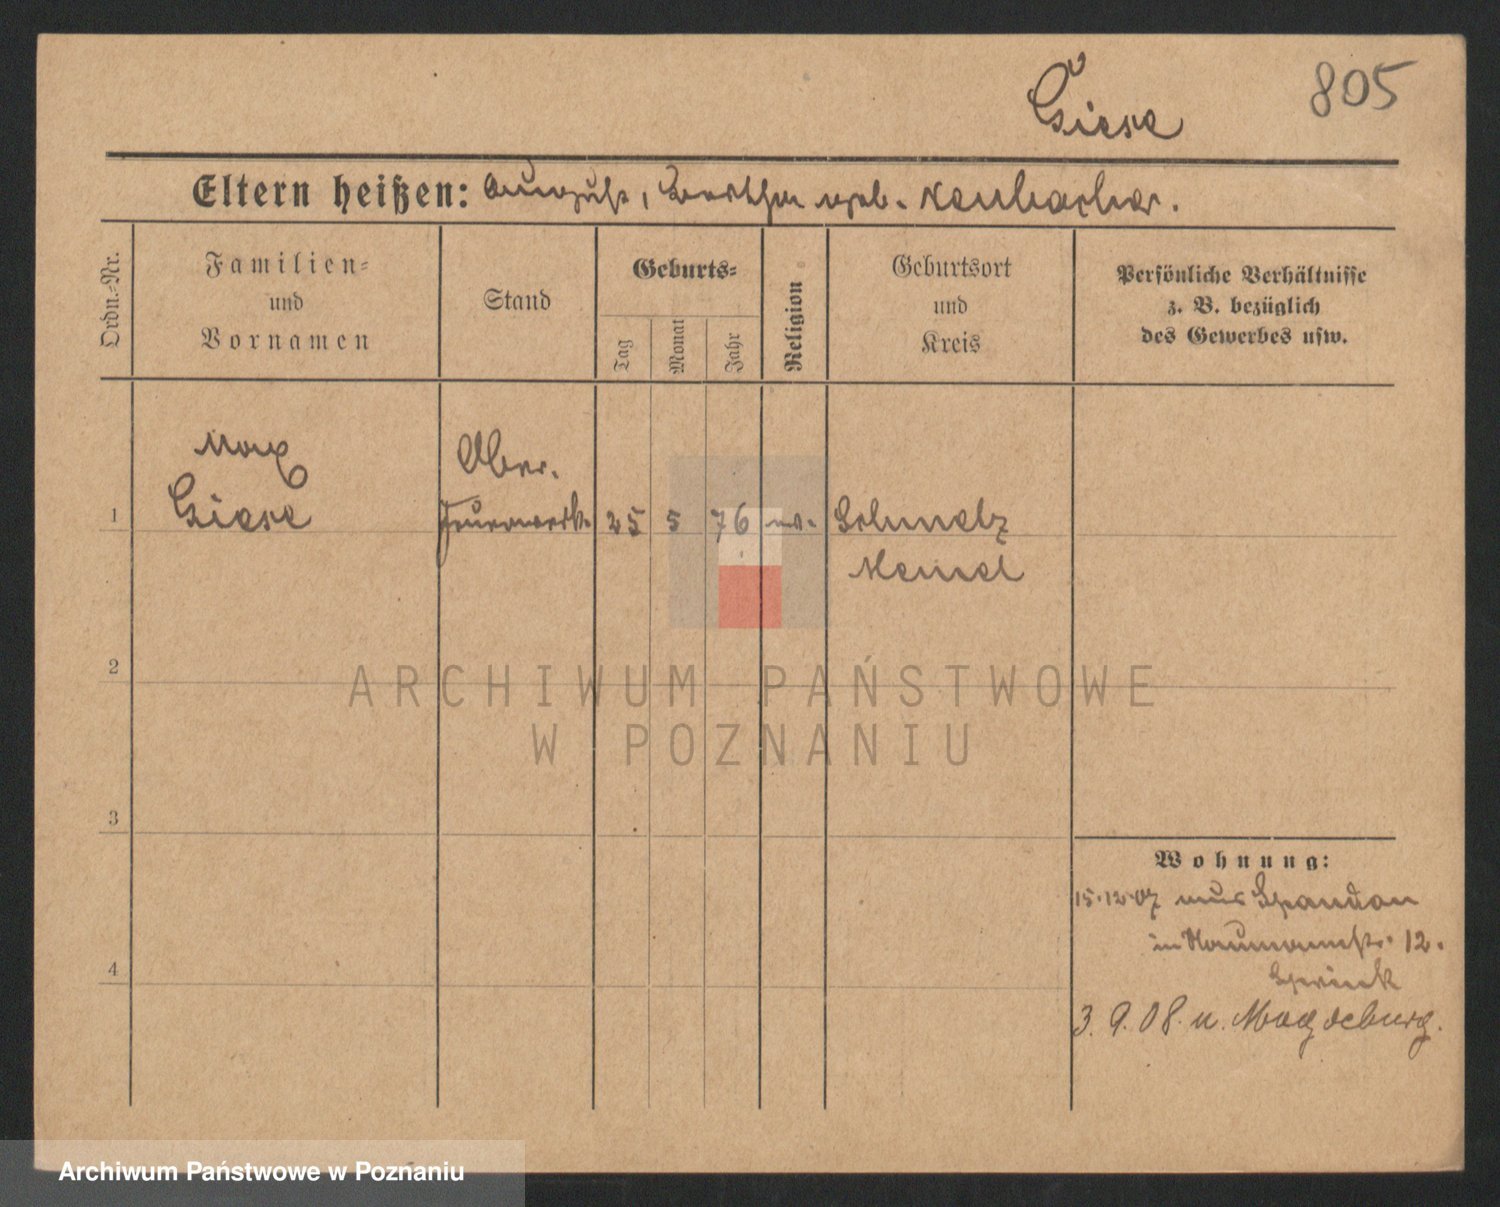 805
Giese
Eltern heißen: August, Bertha geb.
Ordn.-Nr.
Familien-
und
Vornamen
Stand
Geburts-
Tag
Monat
Jahr
Religion
Geburtsort
und
Kreis
Persönliche Verhältnisse
z. B. bezüglich
des Gewerbes usw.
Max
Ober.
1
Giese
Feuerwerk.
25
5
76
ev.
Schmelz
Memel
2
ARCHIWUM PAŃSTWOWE
W POZNANIU
3
Wohnung:
15.12.07 aus Spandau
in Naumannstr. 12.
4
3. 9. 08. n. Magdeburg.
Archiwum Państwowe w Poznaniu